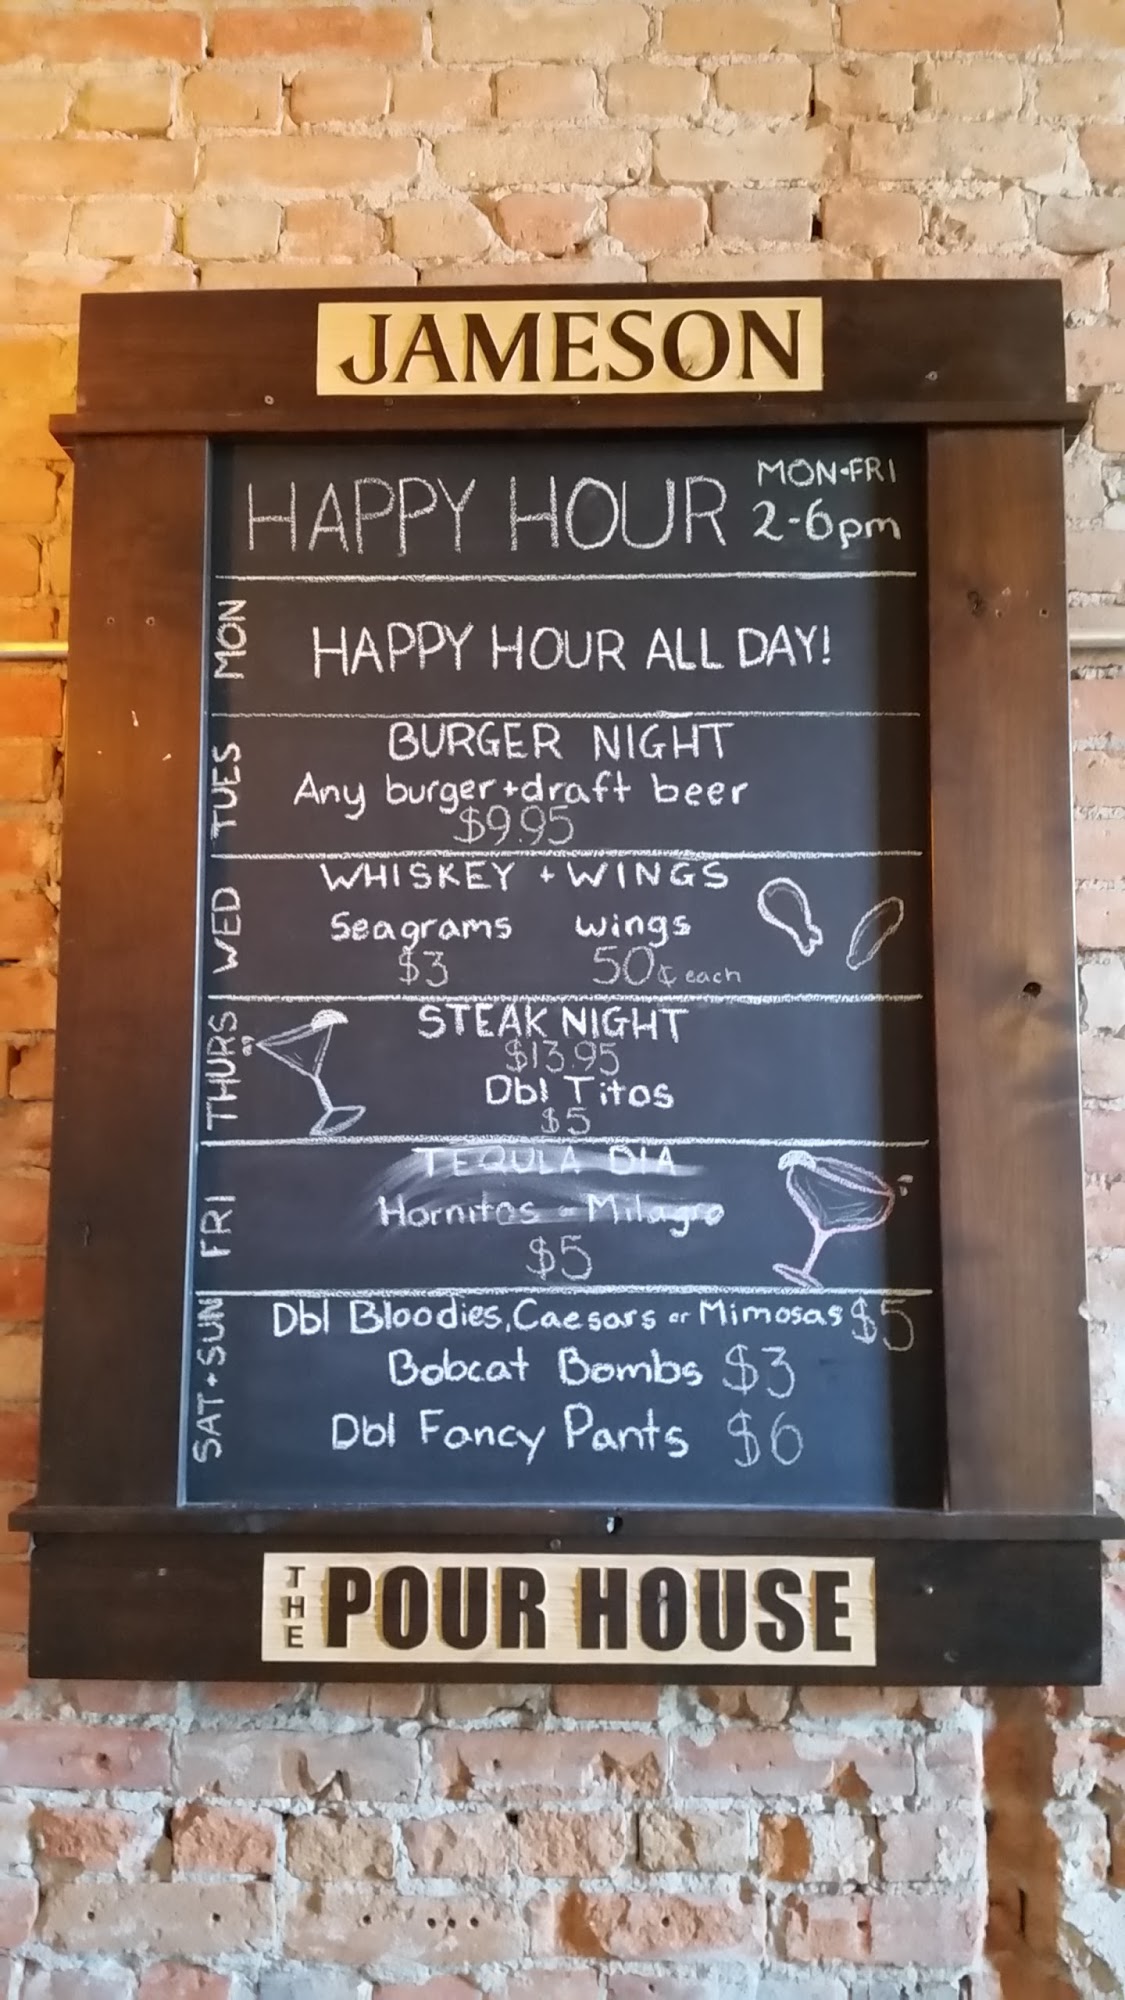 JAMESON
HAPPY HOUR MON-FRI
2-6pm
MON HAPPY HOUR ALL DAY!
TUES BURGER NIGHT
Any burger + draft beer
$9.95
WED WHISKEY + WINGS
Seagrams wings
$3 50¢ each
THURS STEAK NIGHT
$13.95
Dbl Titos
$5
FRI TEQULA DIA
Hornitos or Milagro
$5
SAT + SUN Dbl Bloodies, Caesars or Mimosas $5
Bobcat Bombs $3
Dbl Fancy Pants $6
THE POUR HOUSE